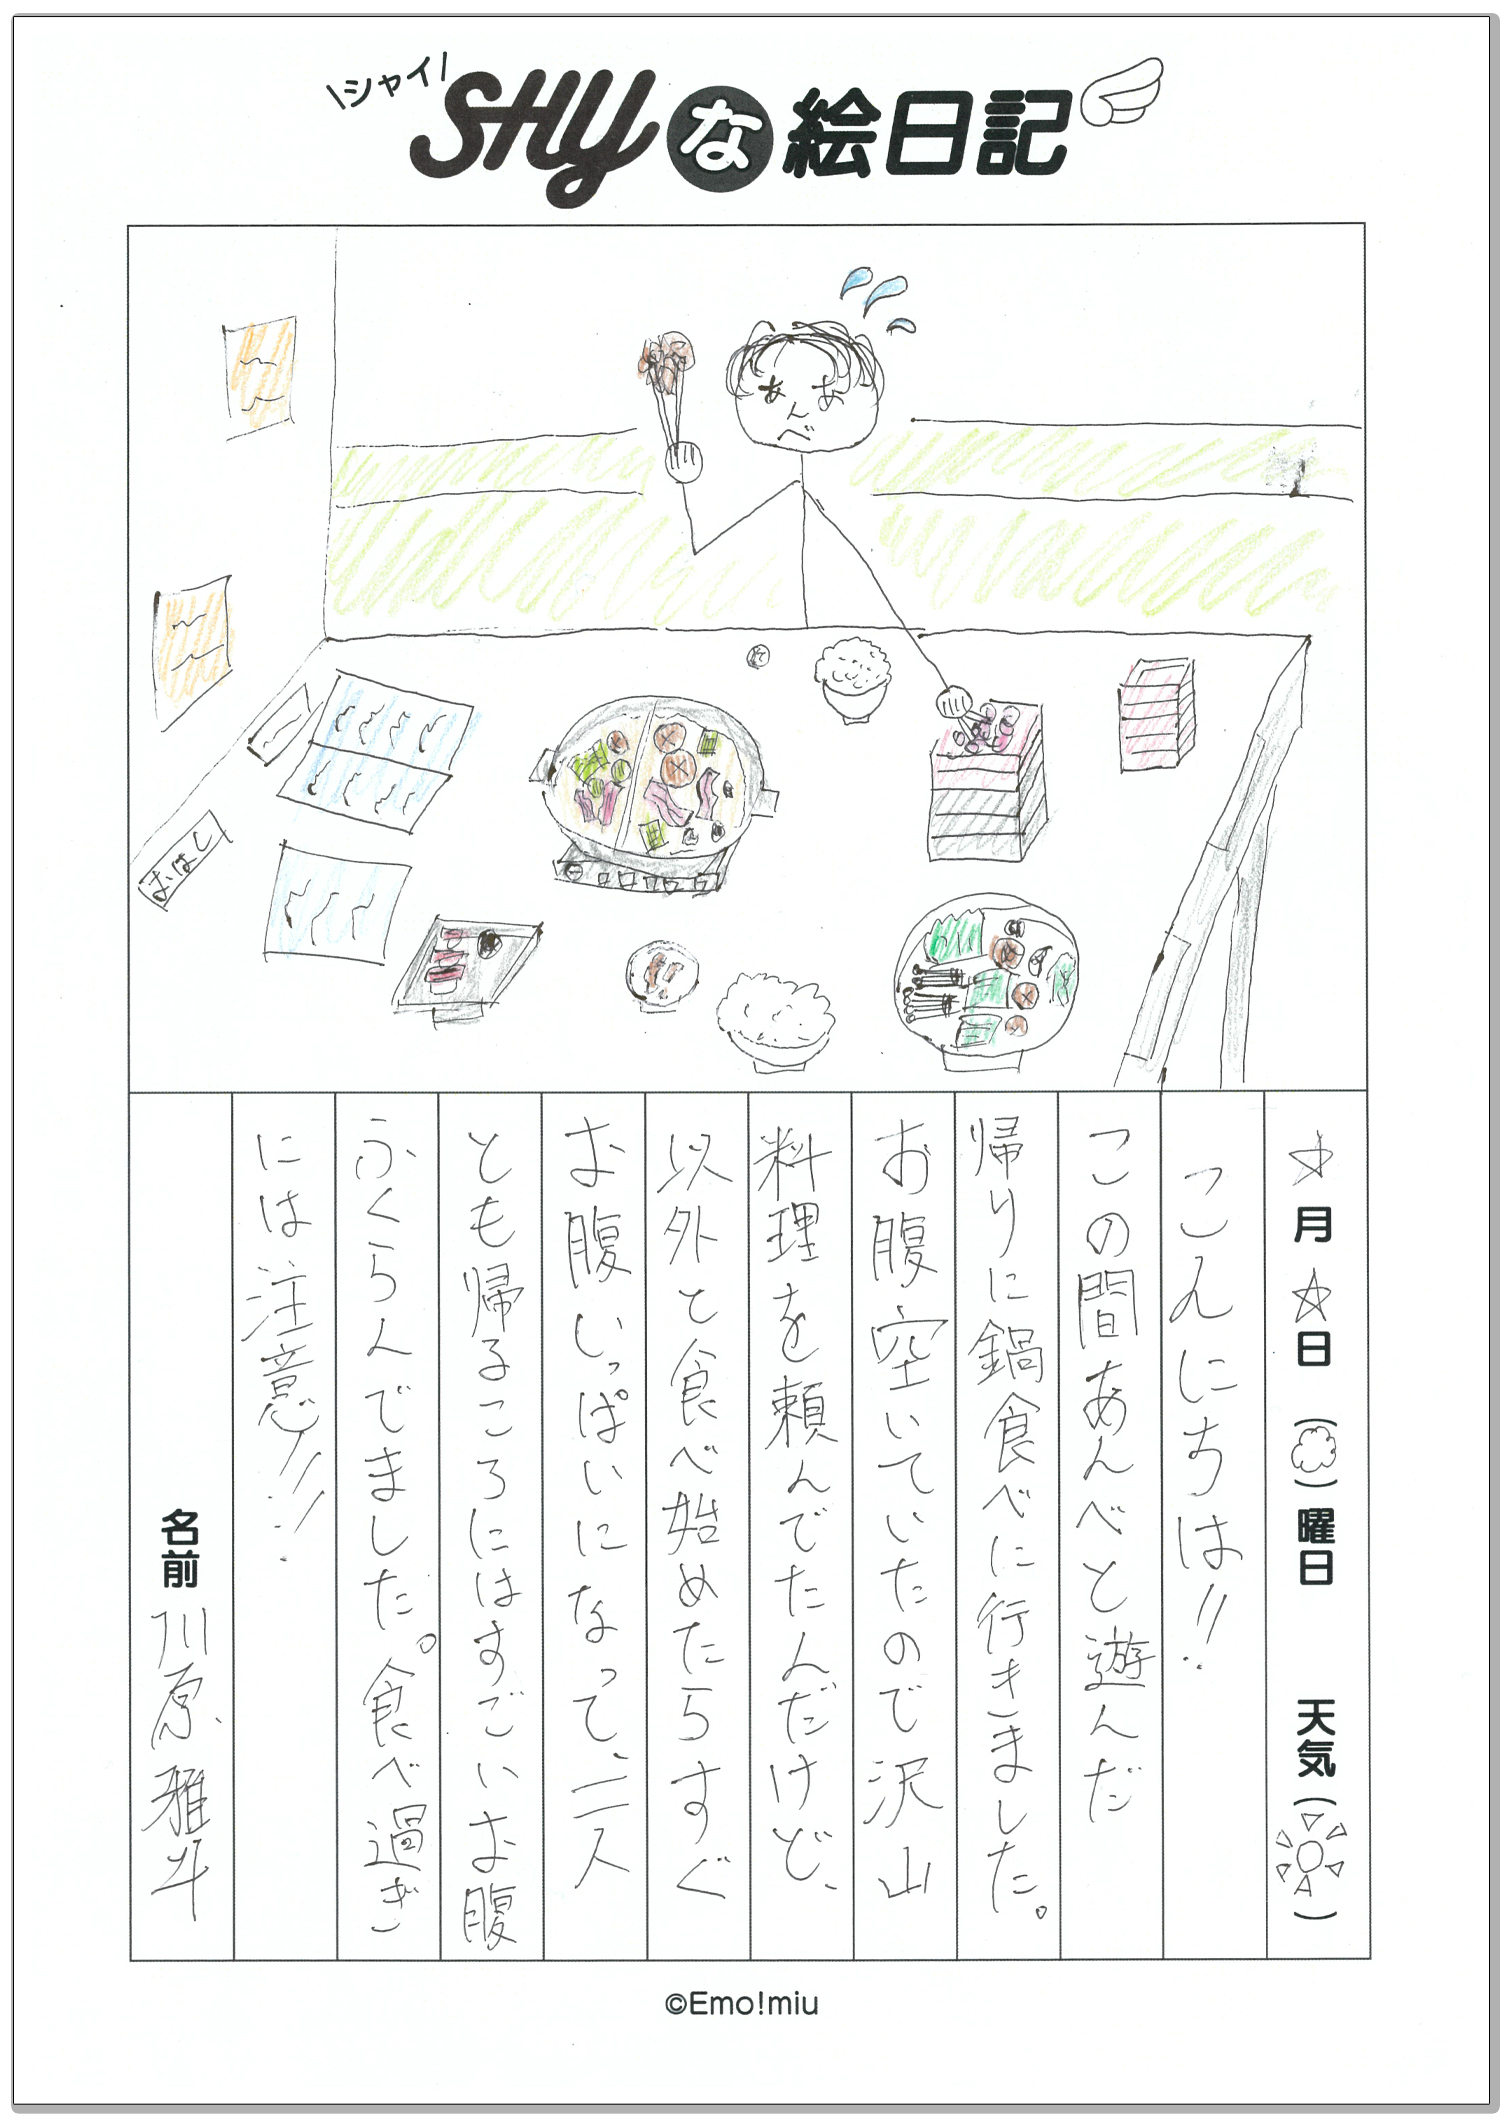 \シャイ/
SHYな絵日記
あ あ
ん
べ
おはし
☆月 ☆日 ( )曜日 天気( )
こんにちは!!
この間あんべと遊んだ
帰りに鍋食べに行きました。
お腹空いていたので沢山
料理を頼んでたんだけど、
以外と食べ始めたらすぐ
お腹いっぱいになって、二人
とも帰るころにはすごいお腹
ふくらんでました。食べ過ぎ
には注意!!!
名前 川原 雅斗
©Emo!miu